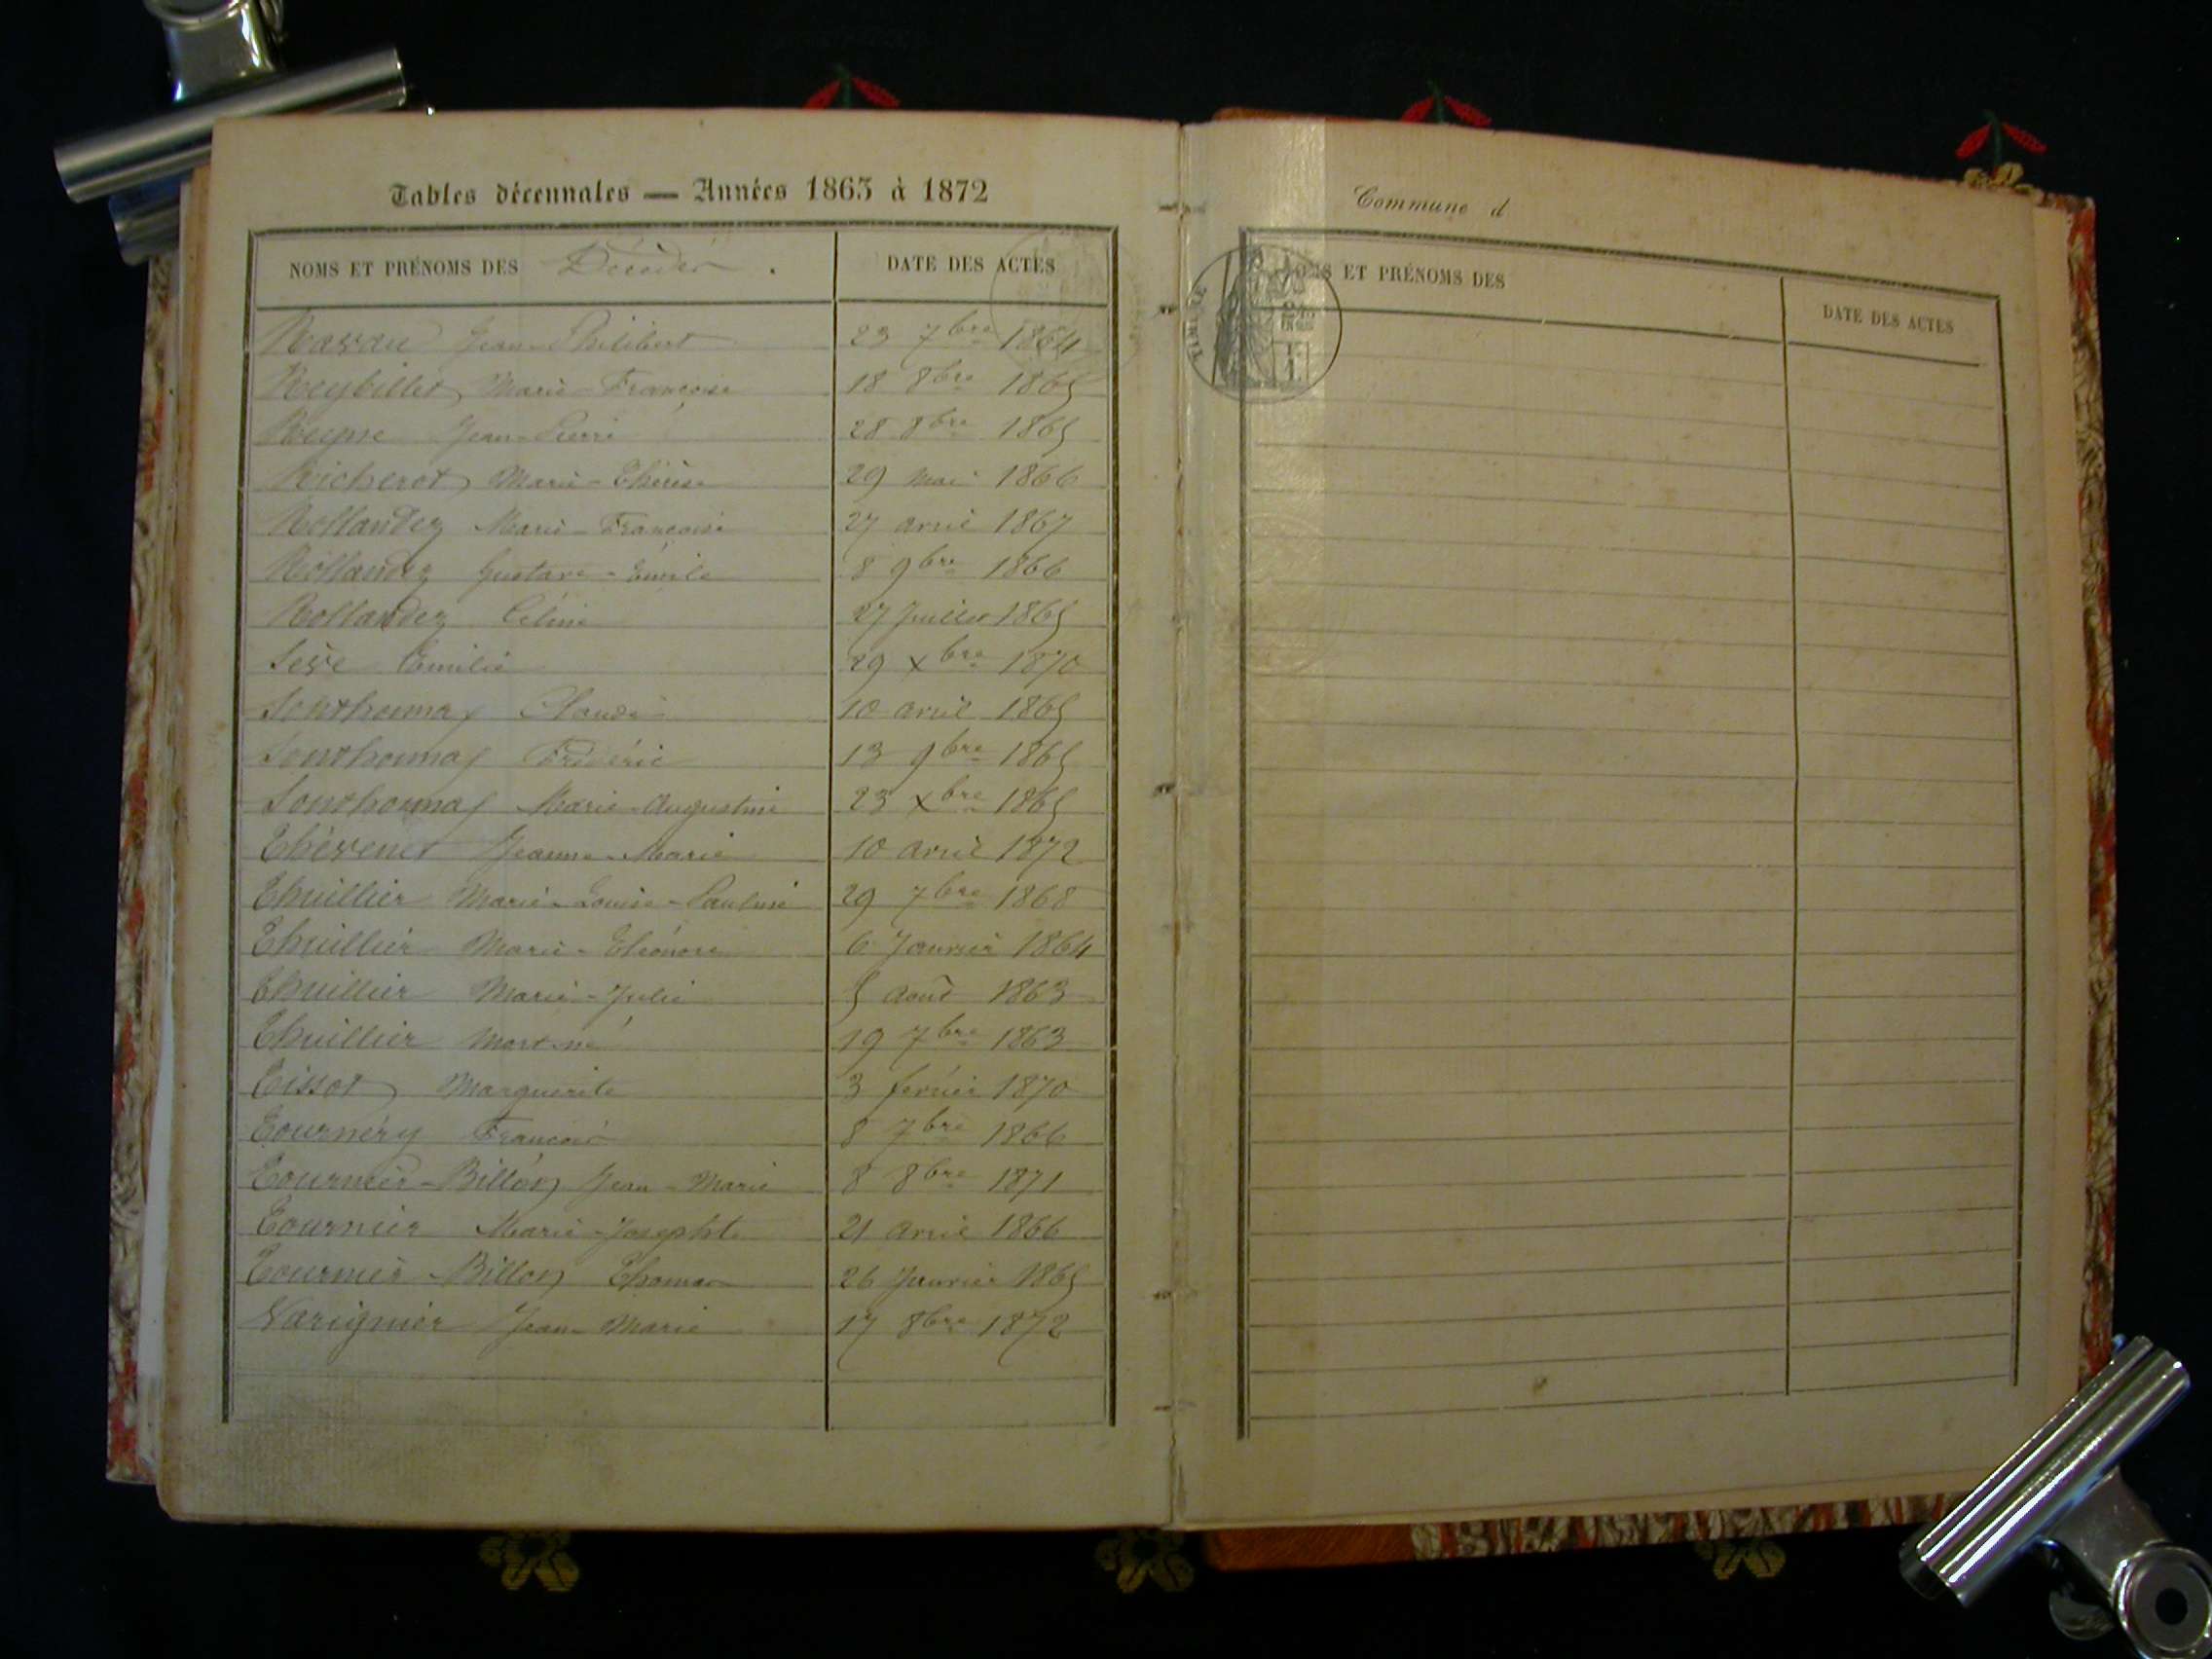 Tables décennales — Années 1863 à 1872
NOMS ET PRÉNOMS DES Décédés. DATE DES ACTES
Ravau Jean-Philibert 23 7bre 1864
Reybillet Marie-Françoise 18 8bre 1865
Reyne Jean-Pierre 28 8bre 1865
Richerot Marie-Thérèse 29 mai 1866
Rollandez Marie-Françoise 27 avril 1867
Rollandez Gustave-Émile 8 9bre 1866
Rollandez Céline 27 Juillet 1865
Sève Emilie 29 xbre 1870
Sonthonnax Claude 10 avril 1865
Sonthonnax Frédéric 13 9bre 1865
Sonthonnax Marie-Augustine 23 xbre 1865
Thévenet Jeanne-Marie 10 avril 1872
Thuillier Marie-Louise-Pauline 29 7bre 1868
Thuillier Marie-Eléonore 6 Janvier 1864
Thuillier Marie-Julie 5 août 1863
Thuillier Mort-né 19 7bre 1863
Tissot Marguerite 3 février 1870
Tournéry François 8 7bre 1866
Tournier-Billon Jean-Marie 8 8bre 1871
Tournier Marie-Josephte 21 avril 1866
Tournier-Billon Thomas 26 Janvier 1865
Varignier Jean-Marie 17 8bre 1872
Commune d
ET PRÉNOMS DES DATE DES ACTES
TIMBRE